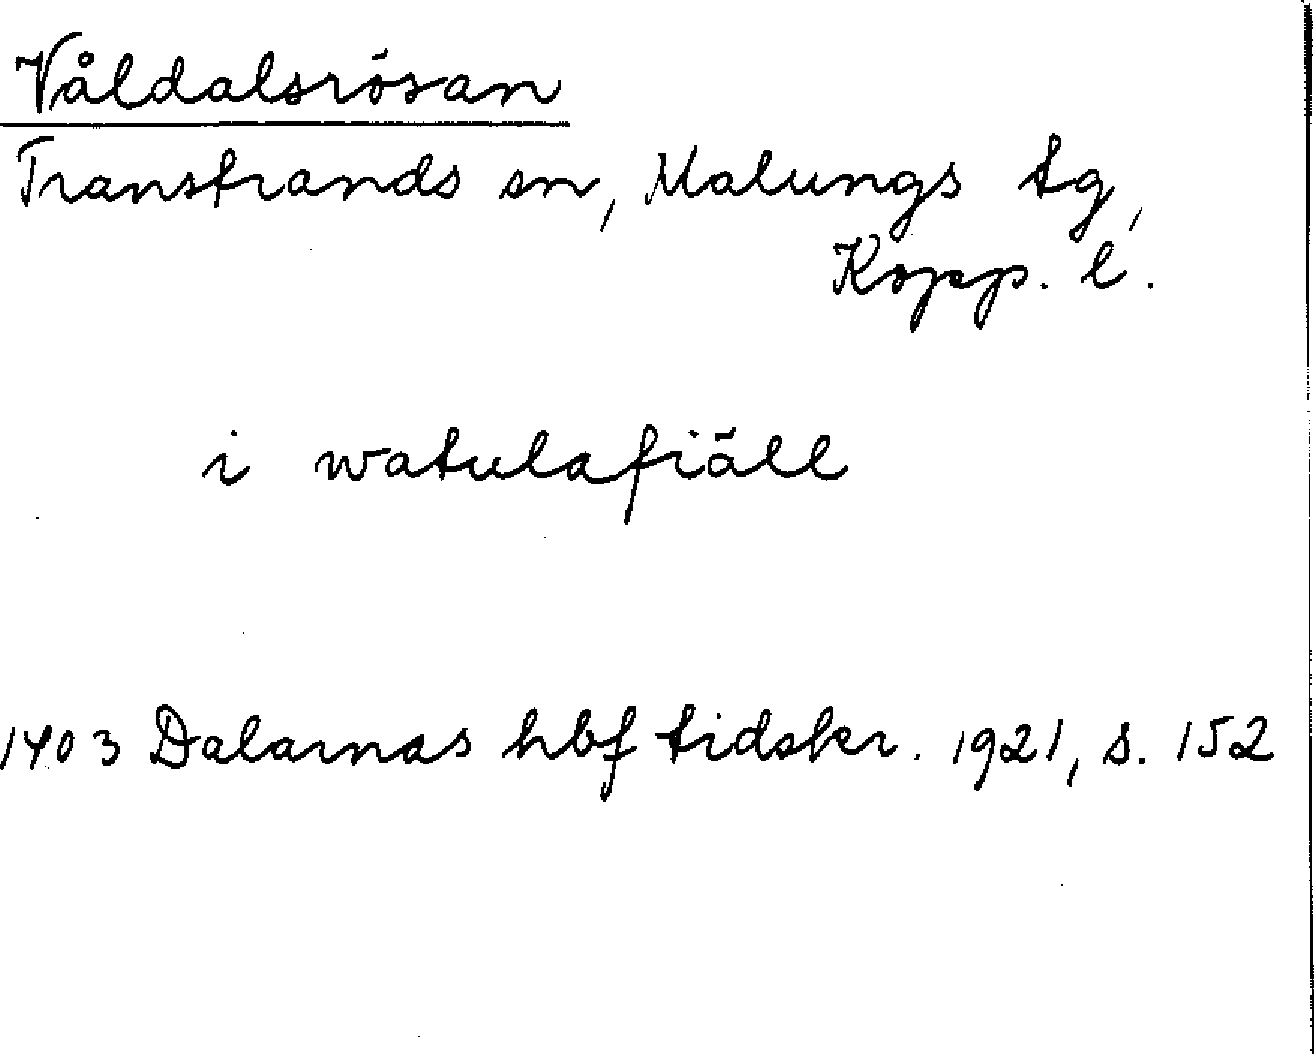 Våldalsrösan
Transtrands sn, Malungs tg,
Kopp. l.
i watulafiäll
1403 Dalarnas hbf tidskr. 1921, s. 152